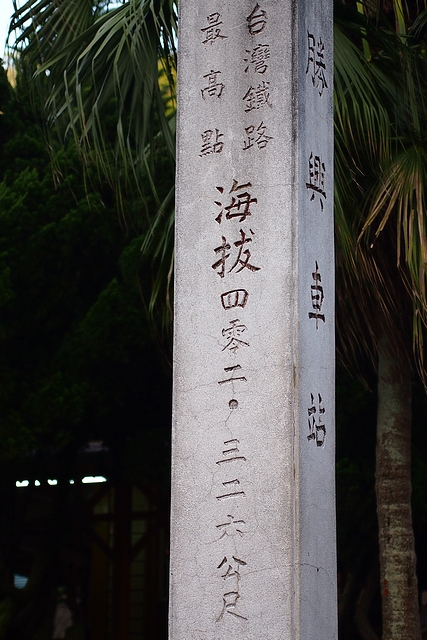 台灣鐵路
最高點
海拔四零二.三二六公尺
勝興車站